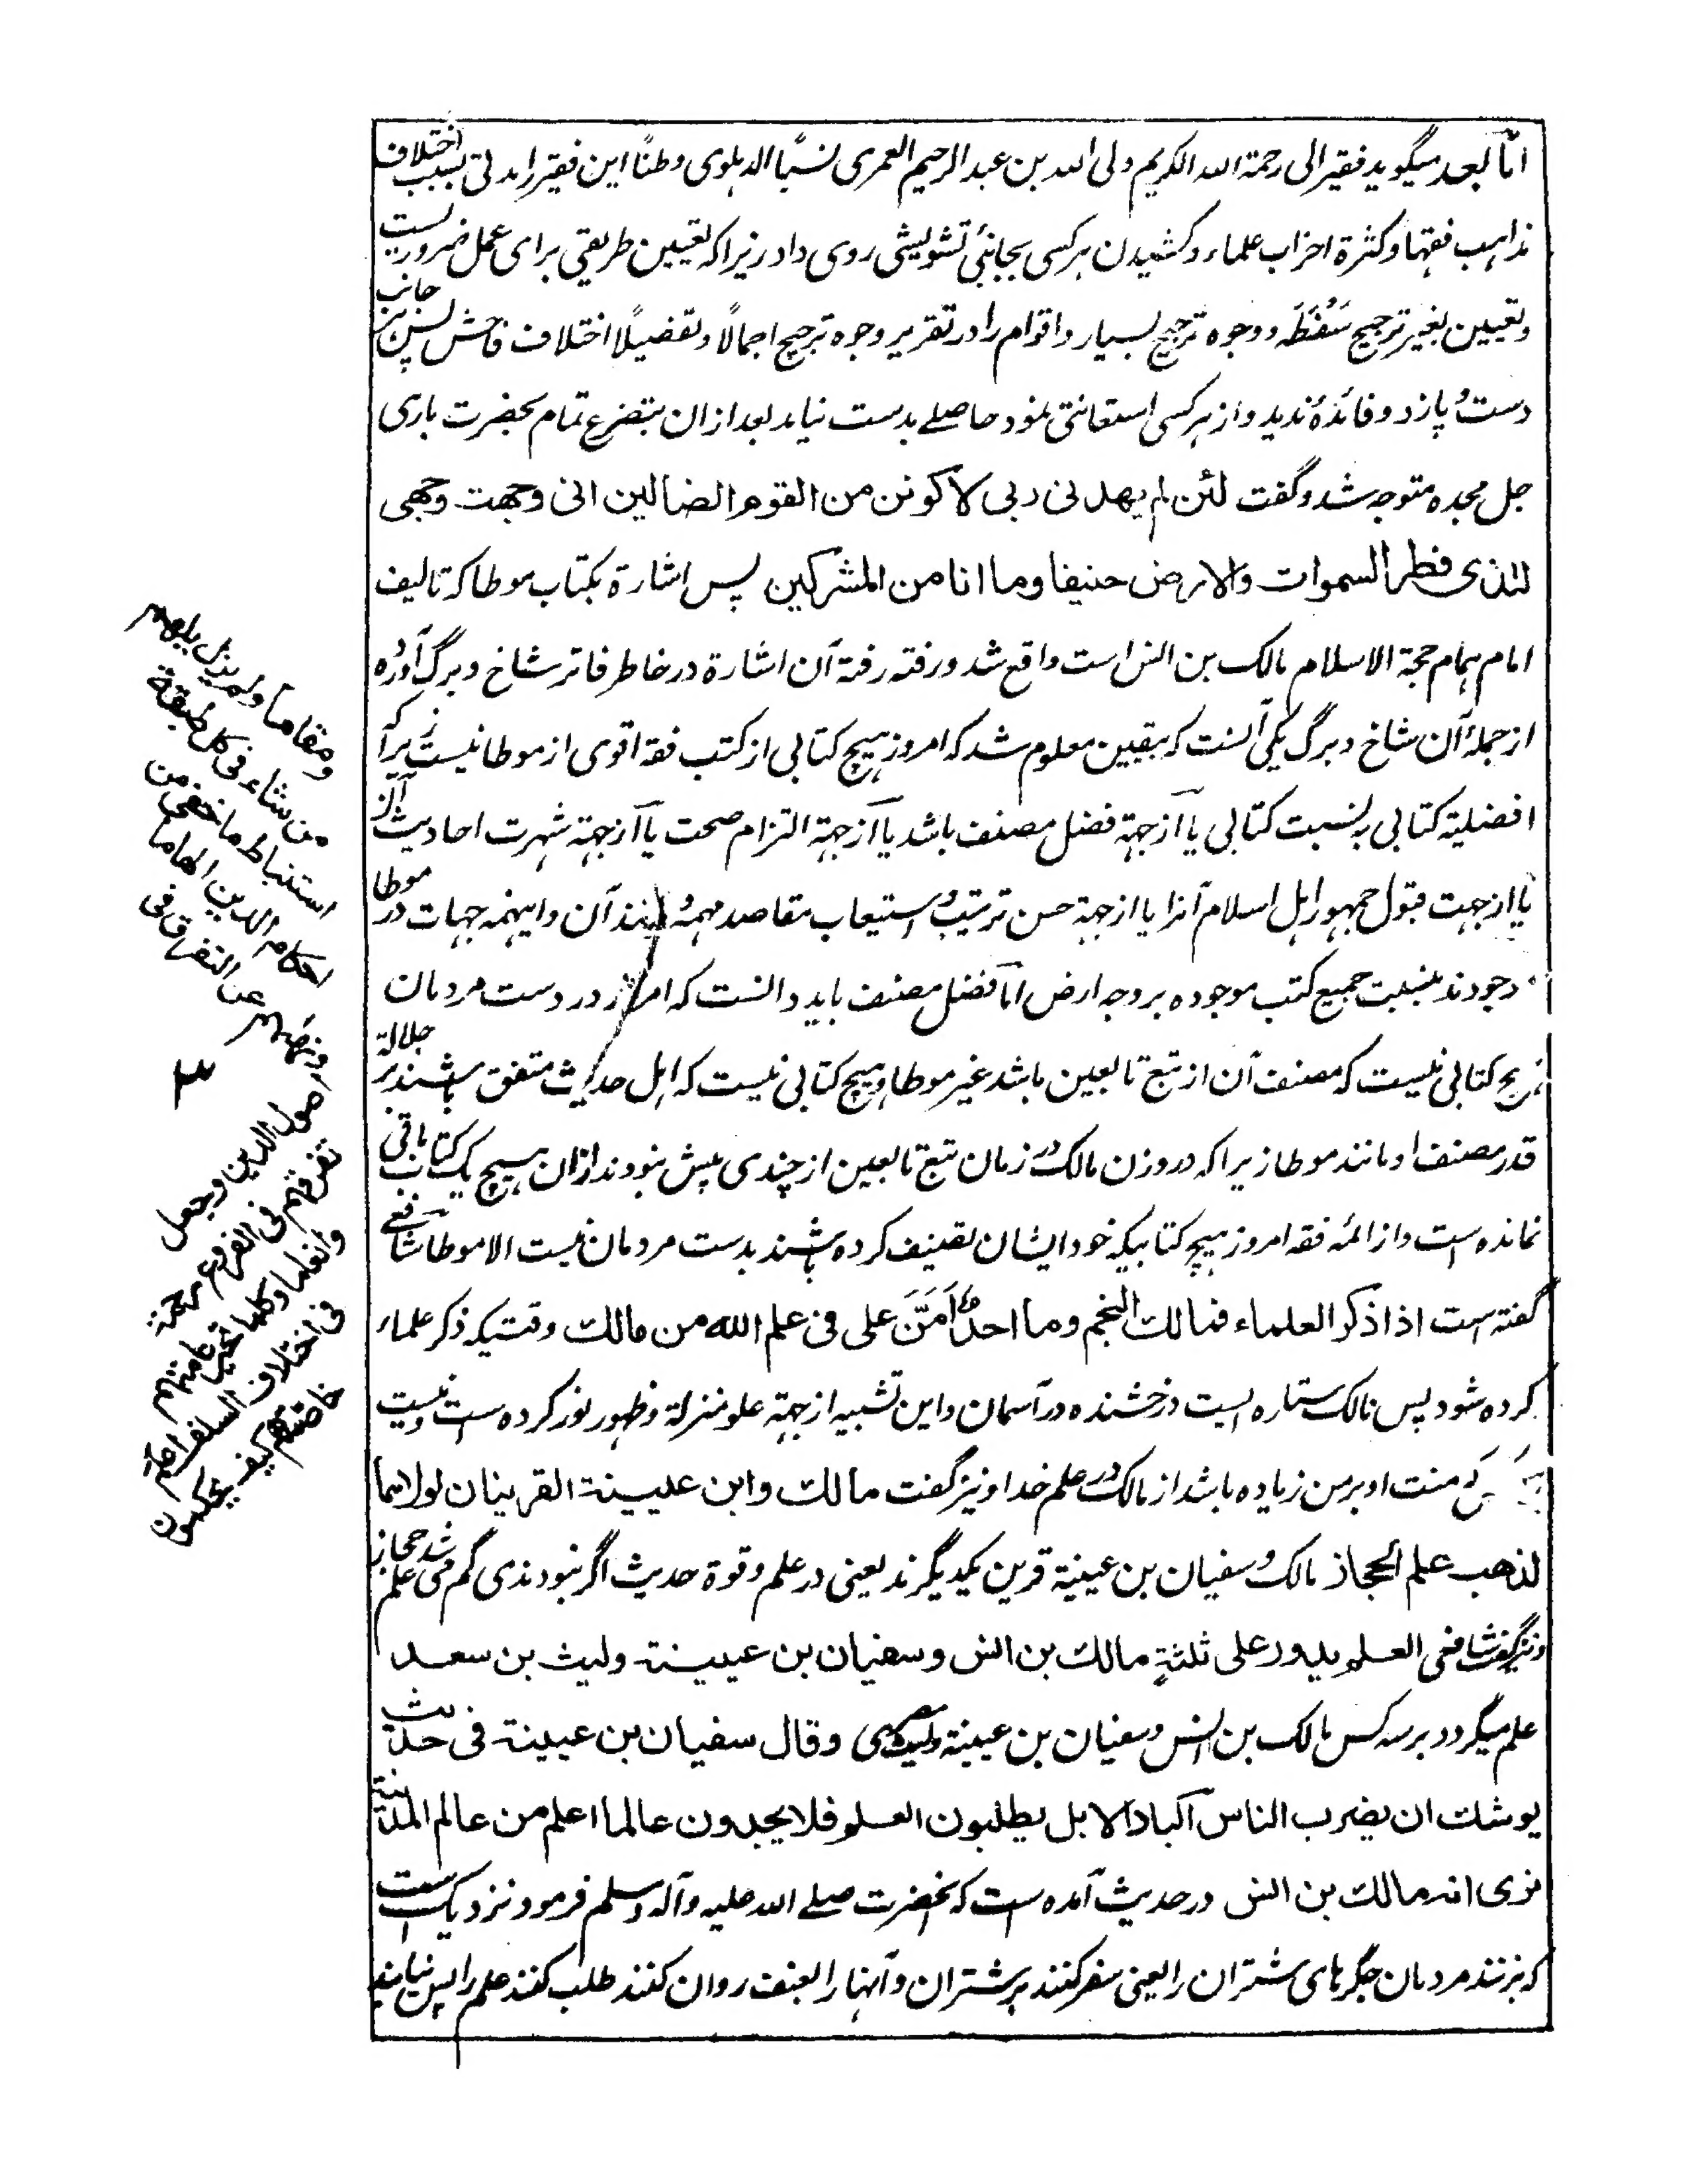 اما بعد میگوید فقیر الی رحمة الله الکریم ولی الله بن عبد الرحیم العمری نسبًا الدہلوی وطنًا این فقیر را مدتی بسبب اختلاف
مذاہب فقہا وکثرة احزاب علماء وکشیدن ہرکسی بجانبی تشویشی روی داد زیراکہ تعیین طریقی برای عمل ضروریست
وتعیین بغیر ترجیح سَفْسَطَہ ووجوہ ترجیح بسیار واقوام را در تقریر وجوہ ترجیح اجمالًا وتفضیلًا اختلاف فاحش پس بہر جانب
دست و پا زد وفائدۂ ندید واز ہرکسی استعانتی نمود حاصلے بدست نیامد بعد ازان بتضرع تمام بحضرت باری
جل مجدہ متوجہ شد وگفت لئن لم یهدنی ربی لاکونن من القوم الضالین انی وجهت وجهی
للذی فطر السموات والارض حنیفا وما انا من المشرکین پس اشارة بکتاب موطا کہ تالیف
امام ہمام حجة الاسلام مالک بن انس است واقع شد ورفتہ رفتہ آن اشارة در خاطر فاتر شاخ وبرگ آوردہ
ازجملۂ آن شاخ وبرگ یکی آنست کہ بیقین معلوم شد کہ امروز ہیچ کتابی از کتب فقہ اقوی از موطا نیست زیراکہ
افضلیة کتابی بہ نسبت کتابی یا از جہة فضل مصنف باشد یا از جہة التزام صحت یا از جہة شہرت احادیث آن
یا از جہت قبول جمہور اہل اسلام آنرا یا از جہة حسن ترتیب و استیعاب مقاصد مہمہ و مانند آن واینہمہ جہات در موطا
موجودند بنسبت جمیع کتب موجودہ بر وجہ ارض اما فضل مصنف باید دانست کہ امروز در دست مردمان
ہیچ کتابی نیست کہ مصنف آن از تبع تابعین باشد غیر موطا وہیچ کتابی نیست کہ اہل حدیث متفق باشند بر جلالة
قدر مصنف او مانند موطا زیراکہ در وزن مالک در زمان تبع تابعین از چندی بیش نبودند ازان ہیچ یک کتاب باقی
نماندہ است واز ائمہ فقہ امروز ہیچ کتابیکہ خود ایشان تصنیف کردہ باشند بدست مردمان نیست الا موطا شافعی
گفتہ است اذا ذکر العلماء فمالک النجم وما احدٌ اَمَنَّ علی فی علم الله من مالك وقتیکہ ذکر علماء
کردہ شود پس مالک ستارہ ایست درخشندہ در آسمان واین تشبیہ از جہة علو منزلة وظہور نور کردہ است ونیست
منت او بر من زیادہ باشد از مالک در علم خدا ونیز گفت مالك وابن عیینة القرینان لولاهما
لذهب علم الحجاز مالک و سفیان بن عیینة قرین یکدیگرند یعنی در علم وقوة حدیث اگر نبودندی گم می شد علم حجاز
ونیز گفت شافعی العلم یدور علی ثلثةٍ مالك بن انس وسفیان بن عیینة ولیث بن سعد
علم میگردد بر سہ کس مالک بن انس وسفیان بن عیینة وقال سفیان بن عیینة فی حدیث
یوشك ان یضرب الناس اکباد الابل یطلبون العلم فلا یجدون عالما اعلم من عالم المدینة
نری انه مالك بن انس در حدیث آمدہ است کہ آنحضرت صلے الله علیہ وآلہ وسلم فرمود نزدیک است
کہ بزنند مردمان جگرہای شتران را یعنی سفر کنند بر شتران وآنہا را بعنف روان کنند طلب کنند علم را پس نیابند
ومقاما ولم یزل یلهم
من شاء فی کل طبقة
استنباط ما خفی من
احکام الدین الهاما
ونهاهم عن التفرق فی
۳
اصول الدین وجعل
تفرقهم فی الفروع رحمة
فی اختلاف السلف